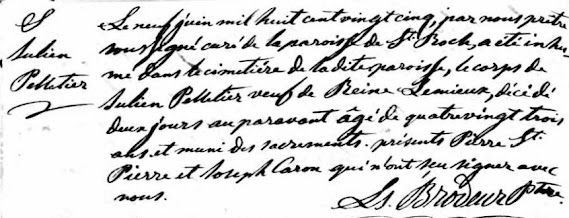 S
Julien
Pelletier
Le neuf juin mil huit cent vingt cinq, par nous prêtre
soussigné curé de la paroisse de St. Roch, a été inhu-
mé dans le cimetière de la dite paroisse, le corps de
Julien Pelletier veuf de Reine Lemieux, décédé
deux jours auparavant âgé de quatrevingt trois
ans et muni des sacrements. présents Pierre St.
Pierre et Joseph Caron qui n'ont sçu signer avec
nous.
Ls. Brodeur Ptre.